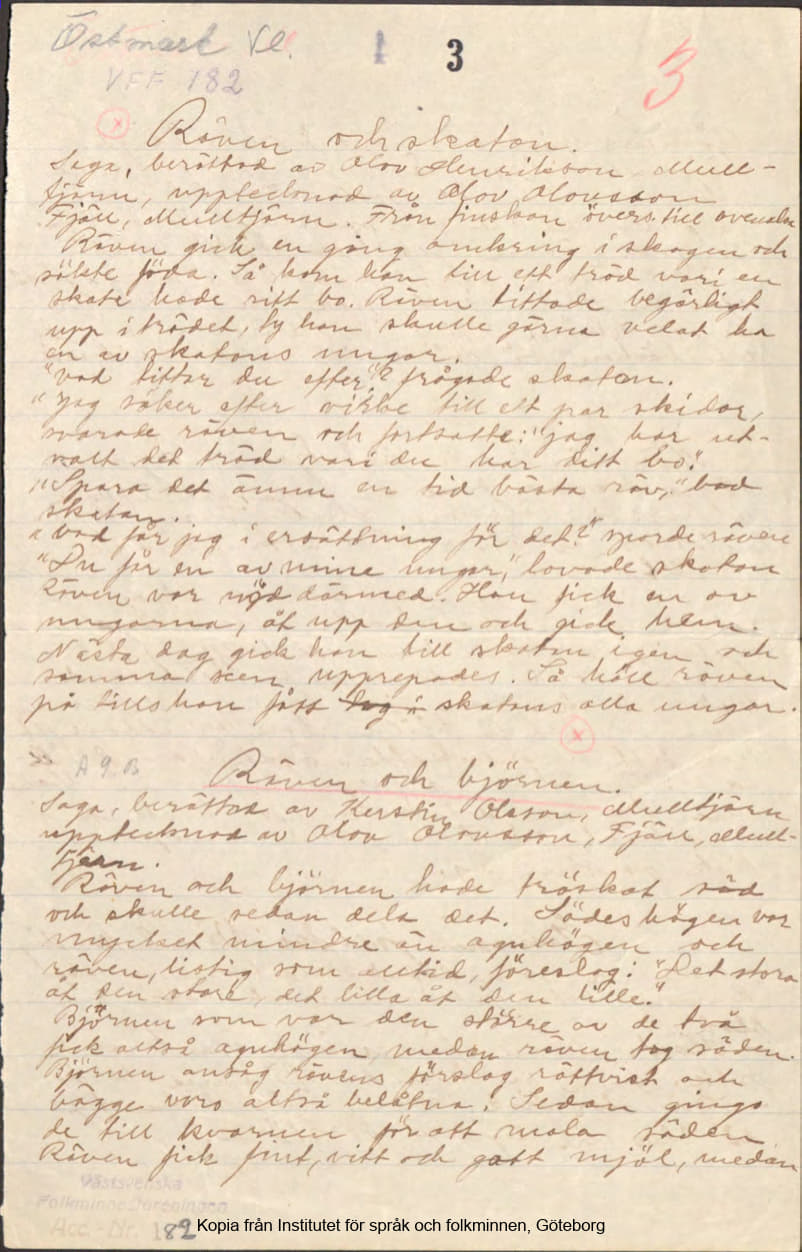 Östmark Vl. 1 3 3
VFF 182
x
Räven och skatan.
Saga, berättad av Olov Henriksson Mull-
tjärn, upptecknad av Olov Olovsson
Fjäll, Mulltjärn. Från finskan övers. till svenska
Räven gick en gång omkring i skogen och
sökte föda. Så kom han till ett träd vari en
skata hade sitt bo. Räven tittade begärligt
upp i trädet, ty han skulle gärna velat ha
en av skatans ungar.
"Vad tittar du efter"? frågade skatan.
"Jag söker efter virke till ett par skidor,
svarade räven och fortsatte: "jag har ut-
valt det träd vari du har ditt bo."
"Spara det ännu en tid bästa räv," bad
skatan.
"Vad får jag i ersättning för det?" sporde räven
"Du får en av mina ungar," lovade skatan
Räven var nöjd därmed. Han fick en av
ungarna, åt upp den och gick hem.
Nästa dag gick han till skatan igen och
samma scen upprepades. Så höll räven
på tills han fått tag i skatans alla ungar.
x
A 9. B
Räven och björnen.
Saga, berättad av Kerstin Olsson, Mulltjärn
upptecknad av Olov Olovsson, Fjäll, Mull-
tjärn.
Räven och björnen hade tröskat säd
och skulle sedan dela det. Sädeshögen var
mycket mindre än agnhögen och
räven, listig som alltid, föreslog: "Det stora
åt den store, det lilla åt den lille."
Björnen som var den större av de två
fick alltså agnhögen, medan räven tog säden.
Björnen ansåg rävens förslag rättvist och
bägge voro alltså belåtna. Sedan gingo
de till kvarnen för att mala säden
Räven fick fint, vitt och gott mjöl, medan
Västsvenska
Folkminnesföreningen
Acc.-Nr. 182
Kopia från Institutet för språk och folkminnen, Göteborg